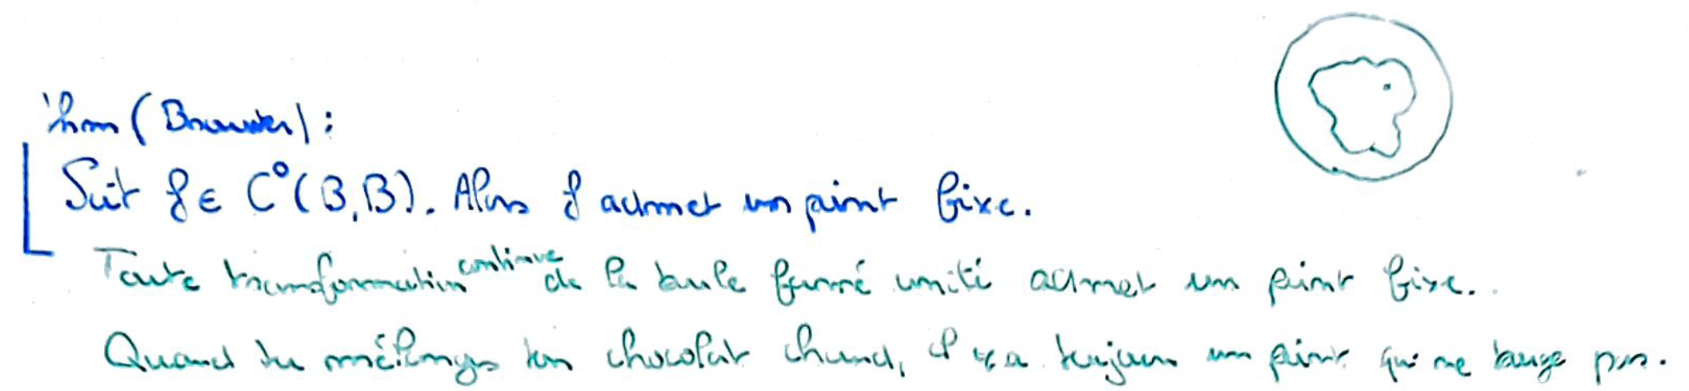 Thm (Brouwer) :
Soit f ∈ C⁰(B,B). Alors f admet un point fixe.
Toute transformation continue de la boule fermé unité admet un point fixe.
Quand tu mélanges ton chocolat chaud, il y a toujours un point qui ne bouge pas.